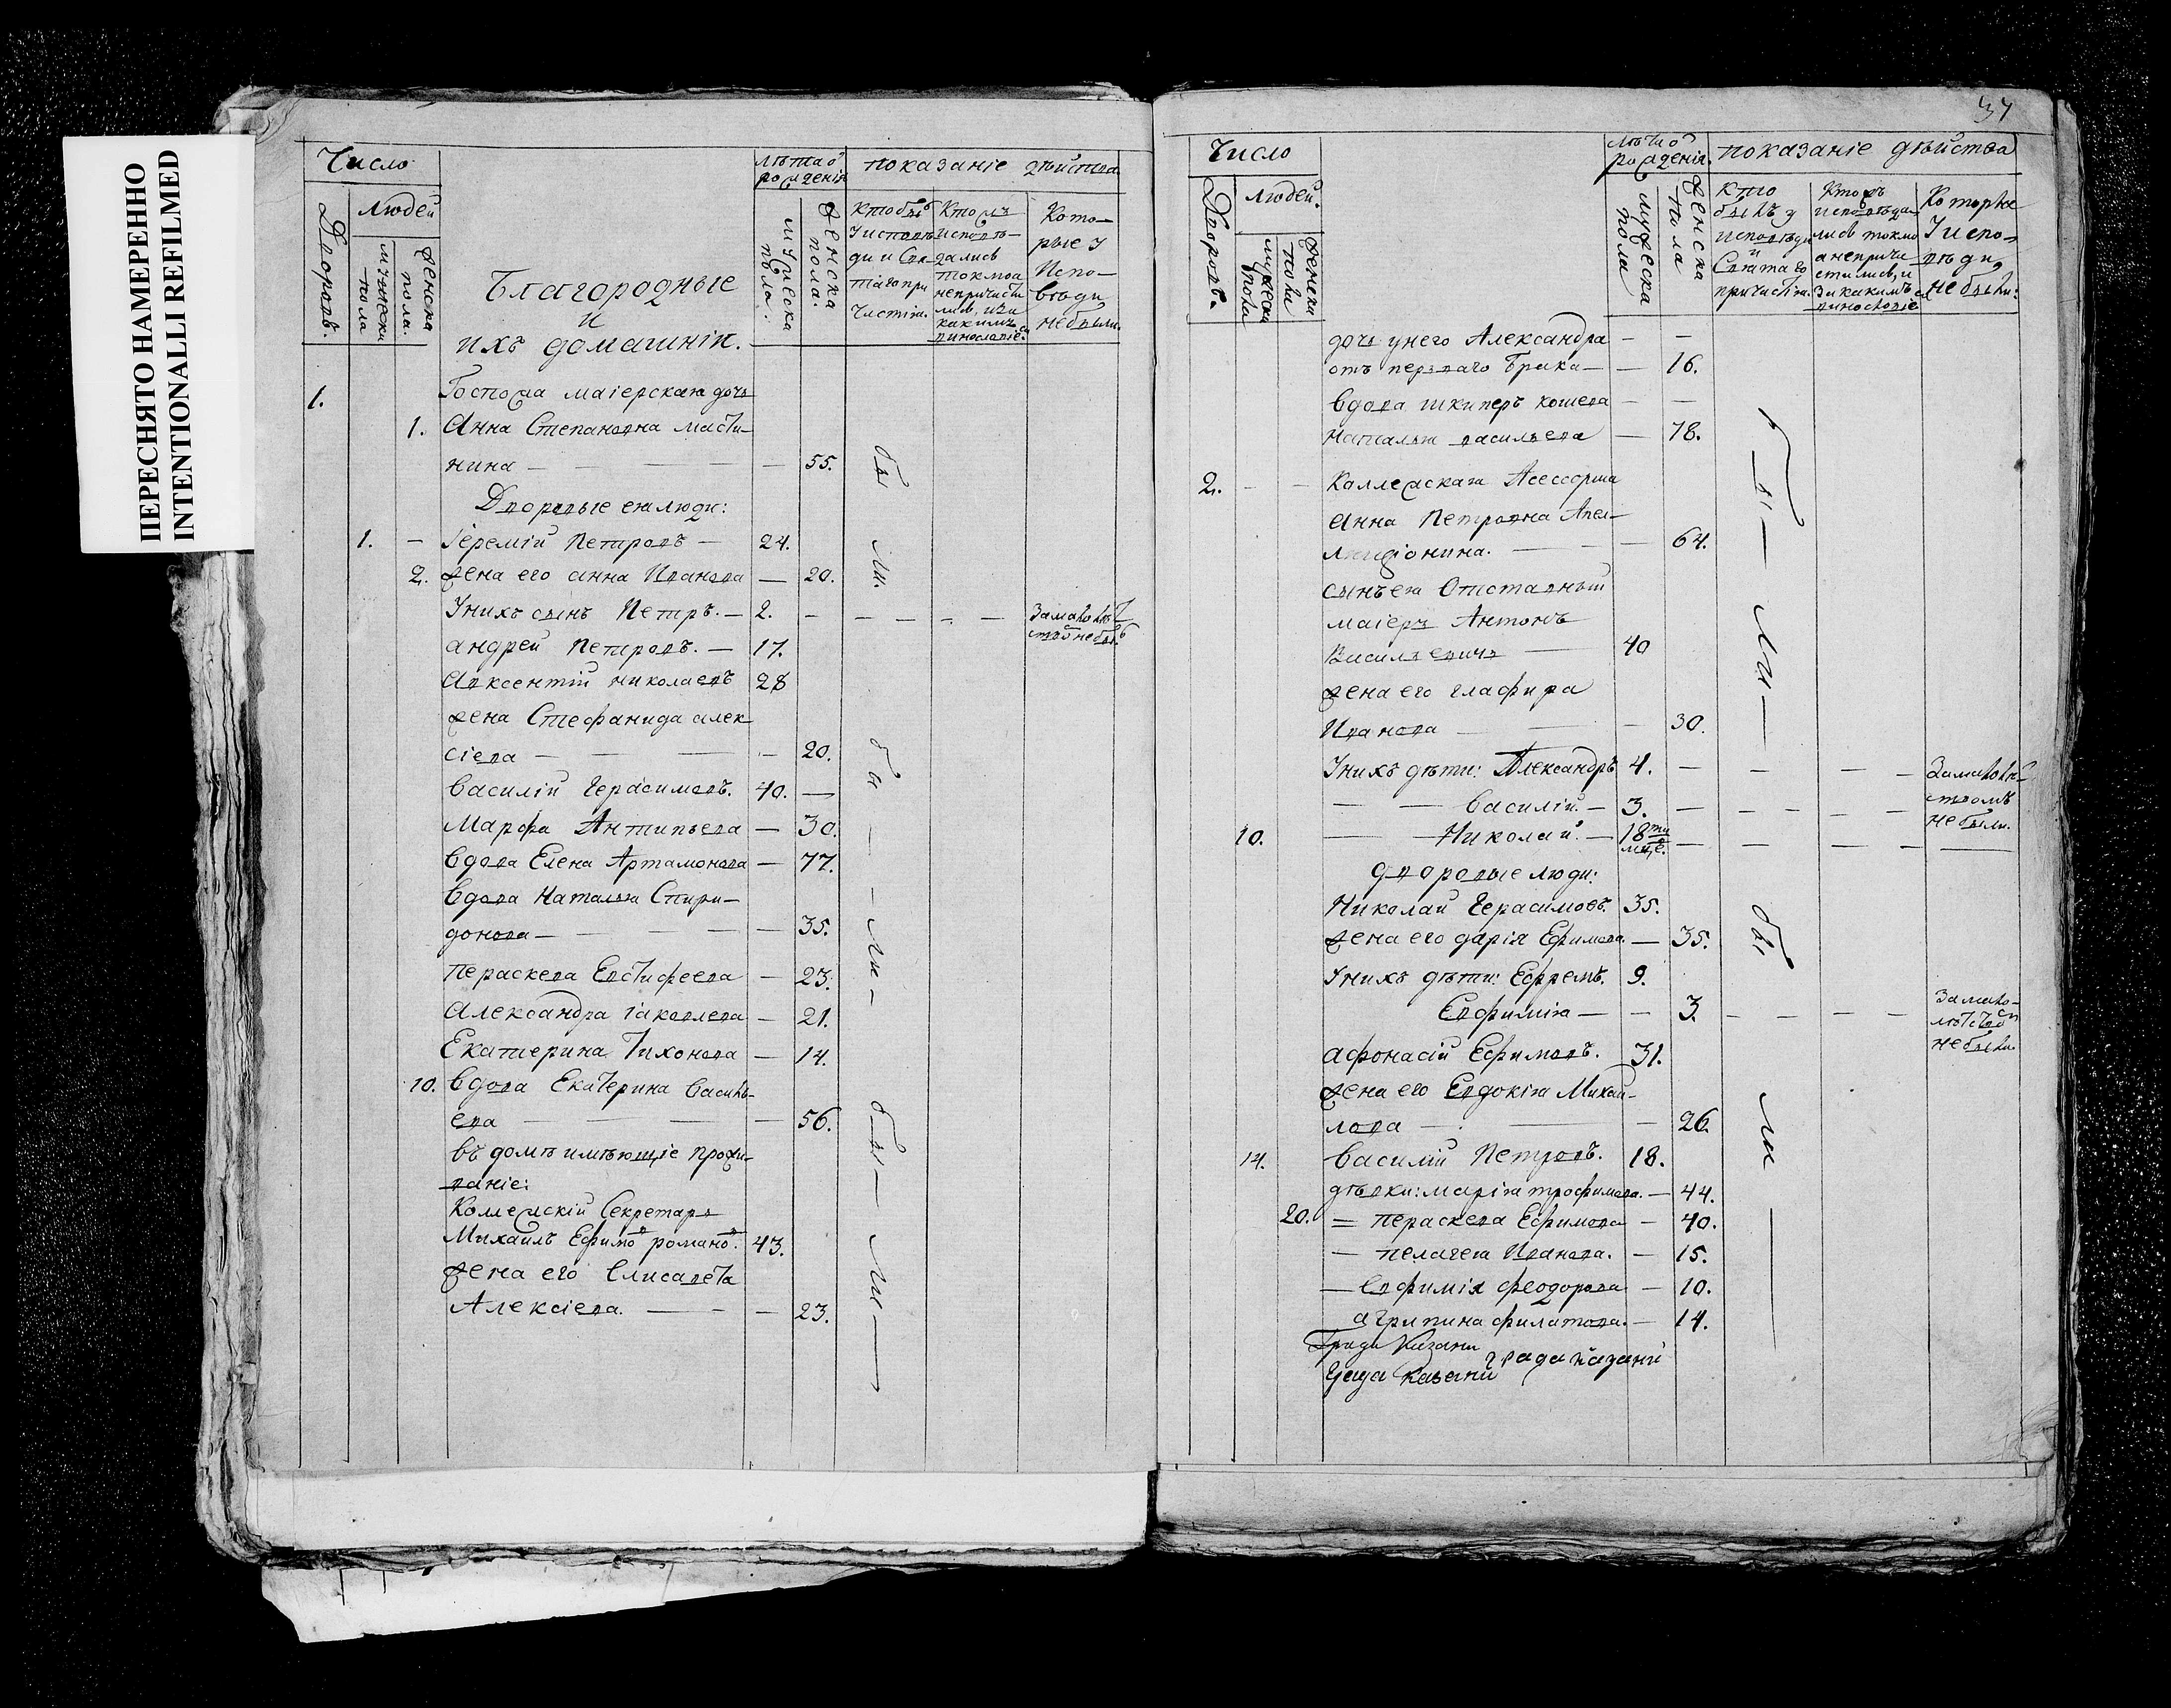 ПЕРЕСНЯТО НАМЕРЕННО
INTENTIONALLI REFILMED
Число
Людей
Дворовъ.
мужеска пола
женска пола.
Благородные
и
ихъ домашніи.
лѣта ѿ рожденія
мужеска пола.
женска пола.
показаніе дѣйства
Кто былъ
У исповѣ-
ди и Свя-
таго при
частія.
Кто
исповѣ-
дались
токмо а
непричасти
лись, и за
какимъ
винословіе.
Кото-
рые у
Испо-
вѣди
не были.
1. Госпожа маіерская дочь
1. Анна Степановна
нина — — — 55.
Дворовые ея люди:
1. — Іеремій Петровъ — 24.
2. жена его анна Иванова — 20.
У нихъ сынъ Петръ. — 2. — — — — — За малолѣт
ствō не был.
андрей Петровъ. — 17.
Авксентій николаевъ 28
жена Стефанида алек-
сіева — — — 20.
Василій Герасимовъ. 40. —
Марфа Антипьева — 30.
Вдова Елена Артамонова — 77.
Вдова Наталья Спири-
донова — — — — 35.
Параскева Евстифеева — 23.
Александра Іаковлева — 21.
Екатерина Тихонова — 14.
10. Вдова Екатерина Василь-
ева — — — — 56.
въ домѣ имѣющіе прожи-
ваніе:
Коллежскій Секретарь
Михаилъ Ефимов романов. 43.
жена его Елисавета
Алексіева. — — — 23.
бы
ли.
бы — — ли —
бы — ли —
37
Число
Людей.
Дворовъ.
мужеска пола
женска пола
лѣта ѿ
рожденія.
мужеска пола
женска пола
показаніе дѣйства
Кто
былъ у
исповѣди
и
Святаго
причастія.
Кто
исповѣда-
лись токмо
а непричи
стились, и
за какимъ
винословіе
Которые
У испо-
вѣди
не были.
дочь у него Александра — —
отъ перваго брака — — 16.
Вдова шкиперъ кошева — —
Наталья васильева — 78.
2. — — Коллежская Асессорша
Анна Петровна
— — 64.
сынъ ея Отставный
маіеръ Антонъ
Васильевичь — 40
жена его глафира
Иванова — — 30.
У нихъ дѣти: Александръ 4. — — — — За малолѣт
— — Василій. — 3. — — — — ствомъ
не были.
10. — — Николай. — 18ти мце. — — — — —
дворовые люди:
Николай Герасимовъ. 35.
жена его дарія Ефимова — 35.
У нихъ дѣти: Ефремъ. 9.
Евфимія — — 3. — — — — За мало-
лѣтств
не были.
афонасій Ефимовъ. 31.
жена его Евдокія Михаи-
лова — — — 26.
14. Василій Петровъ. 18.
дѣвки: марія трофимова. — 44.
20. — параскева Ефимова — 40.
— пелагея Иванова. — 15.
— Евфимія феодорова — 10.
агрипина филатова. — 14.
бы — ли —
бы
ли
Града Казани
града казани
Града казани